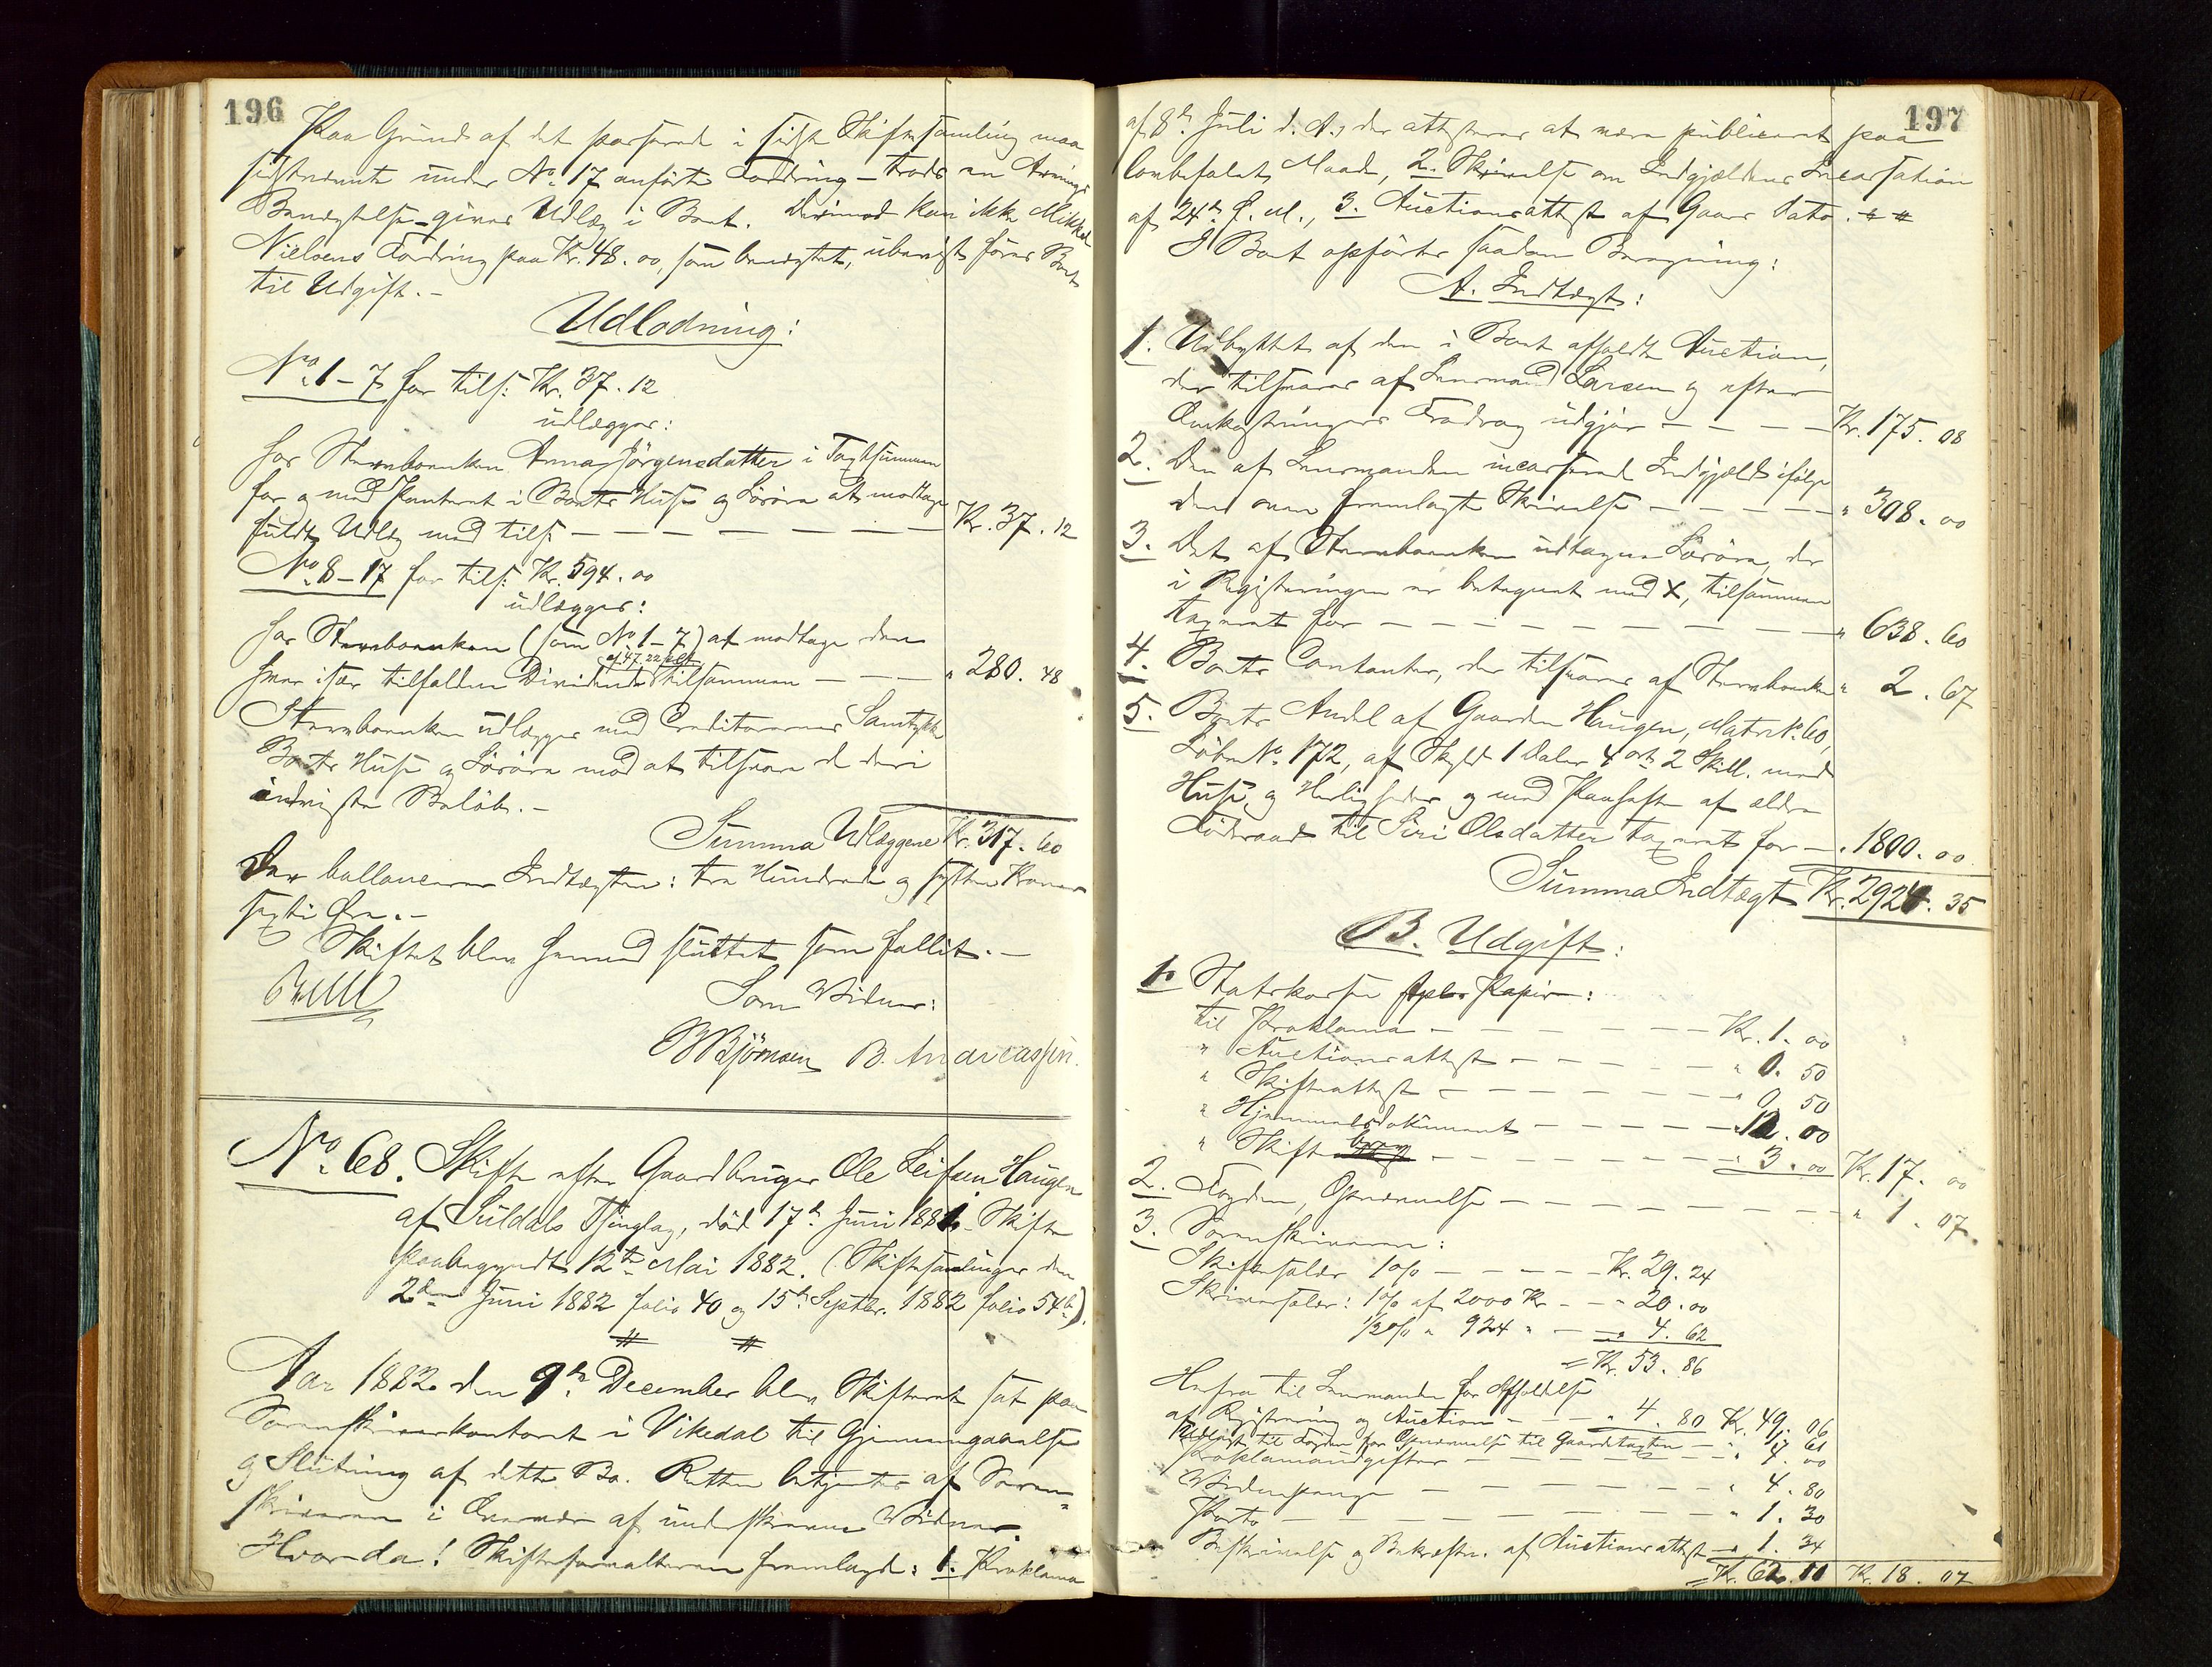 196
Paa Grund af det passerede i sidste Skiftesamling maa
sidstnævnte under No. 17 anførte Fordring – trods en Arvings
Benægtelse – gives Udlæg i Boet. Derimod kan ikke Mikkel
Nielsens Fordring paa Kr. 48.00, som benægtet, ubevist føres Boet
til Udgift. –
Udlodning:
No. 1–7 for tils: Kr. 37.12
udlægges:
for Stervboenken Anna Jørgensdatter i Taxtsummen
for og med Panteret i Boets Huse og Løsøre at modtage
fuldt Udlæg med tils – – – Kr. 37.12
No. 8–17 for tils: Kr. 594.00
udlægges:
for Stervboenken (som No 1–7) at modtage den
af 47.22 pCt
hver især tilfaldne Dividende tilsammen – – – " 280.48
Stervboenken udlægges med Creditorernes Samtykke
Boets Huse og Løsøre mod at tilsvare de deri
andviste Beløb. –
Summa Udlæggene Kr. 317.60
Der ballancerer Indtægten: tre Hundrede og sytten Kroner
sexti Øre. –
Skiftet blev hermed sluttet som fallit. –
Som Vidner:
Bjørnsen B. Andreassen.
No. 68. Skifte efter Gaardbruger Ole Leifsen Haugen
af Suldals Thinglag, død 17de Juni 1881. Skifte
paabegyndt 12te Mai 1882. (Skiftesamlinger den
2den Juni 1882 folio 40 og 15de Septbr. 1882 folio 54b).
Aar 1882 den 9de December blev Skifteret sat paa
Sorenskriverkontoret i Vikedal til Gjennemgaaelse
og Slutning af dette Bo. Retten betjentes af Soren-
skriveren i Overvær af underskrevne Vidner.
Hvor da! Skifteforvalteren fremlagde: 1. Proklama
197
af 8de Juli d. A., der attesteres at være publiceret paa
lovbefalet Maade, 2. Skrivelse om Indgjældens Incassation
af 24de f. M., 3. Auctionsattest af Gaars Dato.
I Boet opførtes saadan Beregning:
A. Indtægt:
1. Udbyttet af den i Boet afholdte Auction,
der tilsvares af Lensmand Larsen og efter
Omkostningers Fradrag udgjør – – – Kr. 175.08
2. Den af Lensmanden incasserede Indgjæld ifølge
den oven fremlagte Skrivelse – – – " 308.00
3. Det af Stervboenken udtagne Løsøre, der
i Registreringen er betegnet med X, tilsammen
taxeret for – – – " 638.60
4. Boets Contanter, der tilsvares af Stervboenken " 2.67
5. Boets Andel af Gaarden Haugen, Matr. No. 60,
Løbe No. 172, af Skyld 1 Daler 4 ort 2 Skill. med
Huse og Herligheder og med Paahefte af ældre
Føderaad til Siri Olsdatter taxeret for – " 1800.00
Summa Indtægt Kr. 2924.35
B. Udgift:
1. Statskassen Papir:
til Proklama – – – Kr. 1.00
" Auctionsattest – – – " 0.50
" Skifteattest – – – " 0.50
" Hjemmelsdokument – – – " 12.00
" Skift – – – " 3.00 Kr. 17.00
2. Fogden, Opnævnelse – – – " 1.07
3. Sorenskriveren:
Skiftesalær 1% – – – Kr. 29.24
Skriversalær: 1% af 2000 Kr – – " 20.00
1/2% " 924 " – – " 4.62
= Kr. 53.86
Herfra til Lensmanden for Afholdelse
af Registrering og Auction – – – " 4.80 Kr. 49.06
Udlagt til Fogden for Opnævnelse til Gaardstaxten –
Proklamaudgifter – – –
Vidnepenge – – – " 4.80
Porto – – – " 1.30
Beskrivelse og Bekræftn. af Auctionsattest – " 1.34
Kr. 18.07